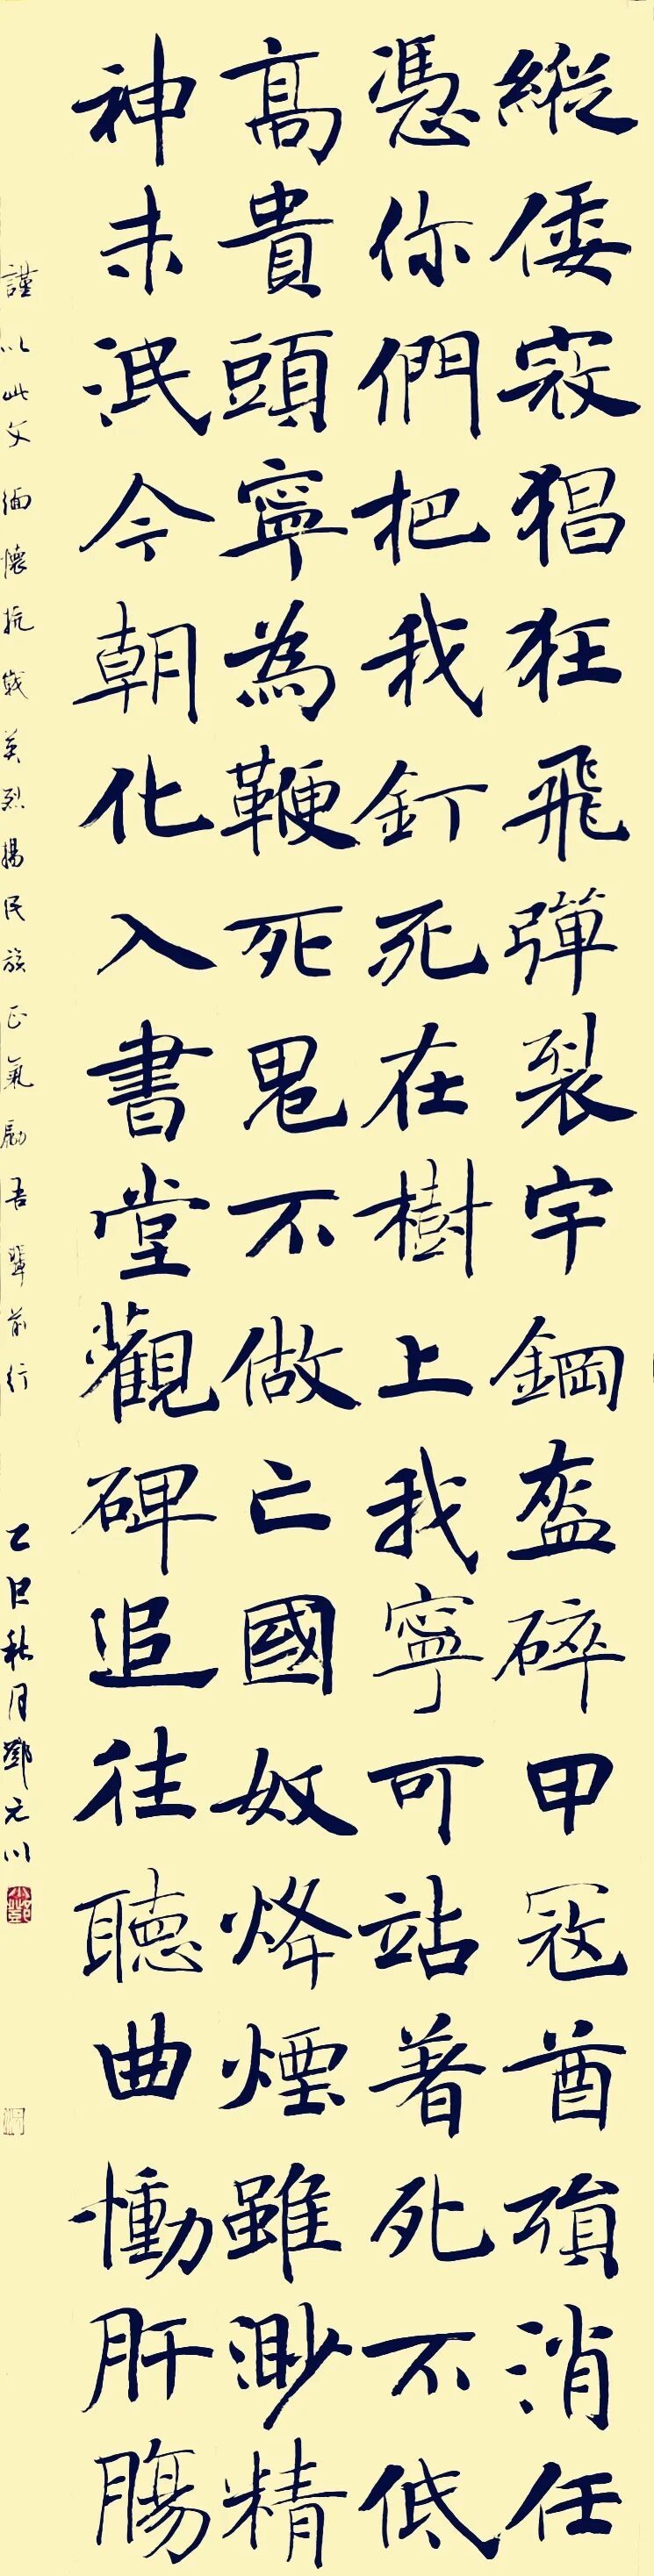 縱倭寇猖狂飛彈裂宇鋼盔碎甲寇酋殞消任
憑你們把我釘死在樹上我寧可站著死不低
高貴頭寧為鞭死鬼不做亡國奴烽煙雖渺精
神未泯今朝化入書堂觀碑追往聽曲慟肝腸
謹以此文緬懷抗戰英烈揚民族正氣勵吾輩前行
乙巳秋月鄧元川